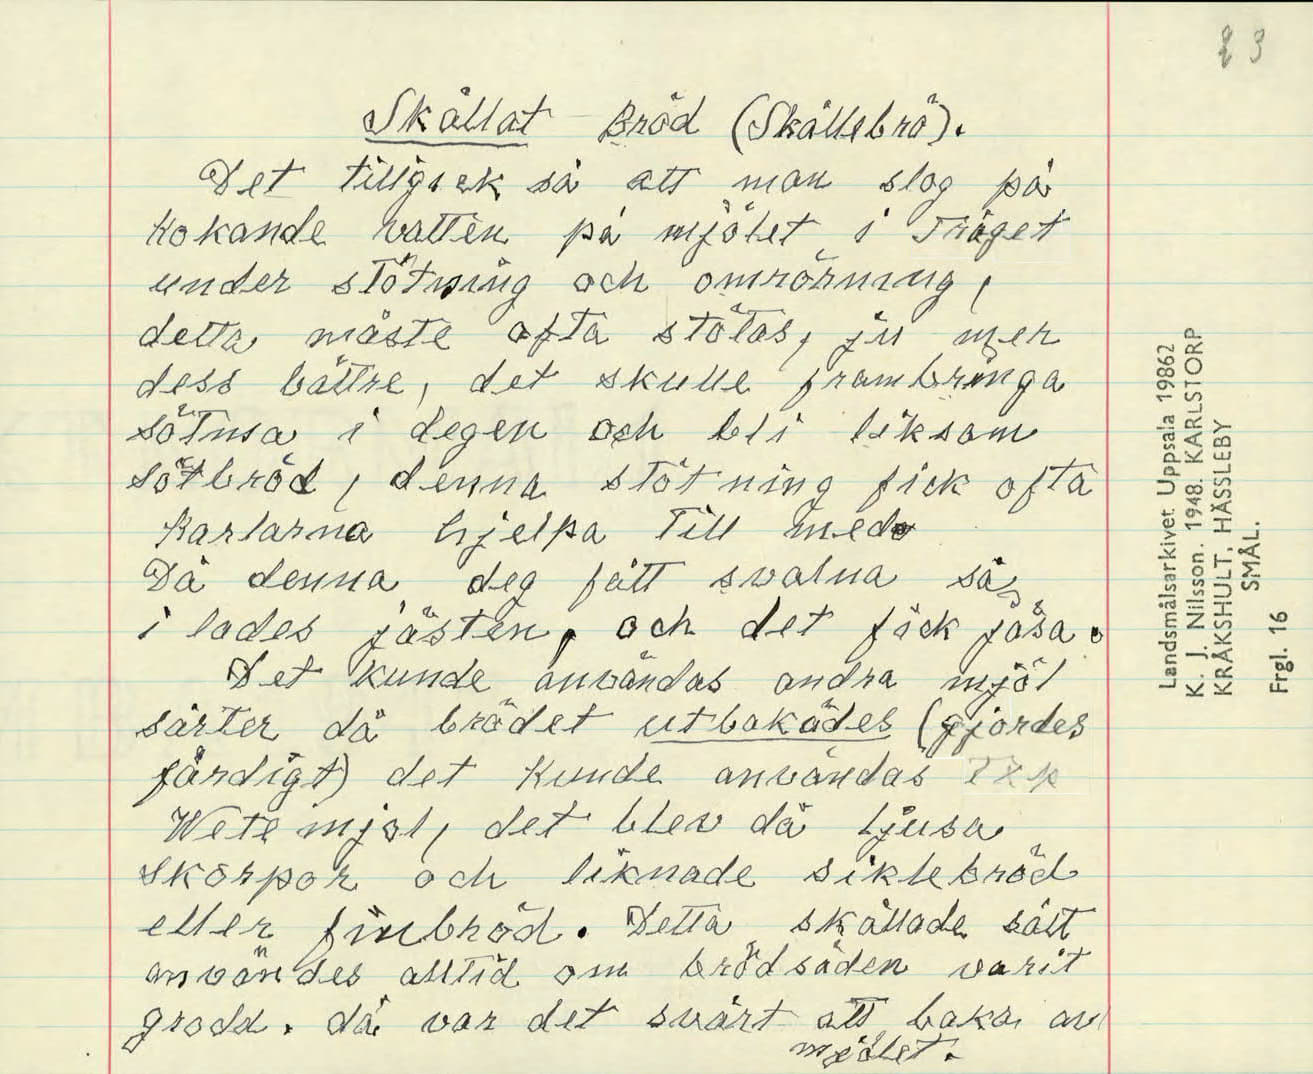 23
Skållat Bröd (Skållebrö).
Det tillgick så att man slog på
Kokande vatten på mjölet i Tråget
under stötning och omrörning,
detta måste ofta stötas, ju mer
dess bättre, det skulle frambringa
sötma i degen och bli liksom
sötbröd, denna stötning fick ofta
Karlarna hjelpa till med
Då denna deg fått svalna så
i lades jästen, och det fick jäsa.
Det kunde användas andra mjöl
sårter då brödet utbakades (gjordes
färdigt) det kunde användas Txp
Wetemjöl, det blev då ljusa
skorpor och liknade siktebröd
eller finbröd. Detta skållade sätt
användes alltid om brödsäden varit
grodd. då var det svårt att baka av
mjölet.
Landsmålsarkivet Uppsala 19862
K. J. Nilsson. 1948. KARLSTORP
KRÅKSHULT, HÄSSLEBY
SMÅL.
Frgl. 16